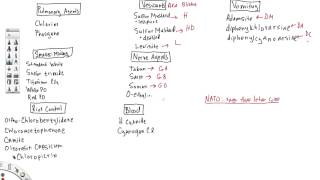 Pulmonary Agents
Chlorine
Phosgene
Smoke-Making
Standard White
Sulfur trioxide
Titanium
White PO
Red PO
Riot Control
Ortho-Chlorobenzylidene
Chloroacetophenone
Camite
Oleoresin Capsicum
*Chloropicrin
Vesicants AKA Blister
Sulfur Mustard → H
Sulfur Mustard → HD
- distilled
Lewisite → L
Nerve Agents
Tabun → GA
Sarin → GB
Soman → GD
O-ethyl
Blood
H Cyanide
Cyanogen Cl
Vomiting
Adamsite → DM
diphenylchloroarsine → DA
diphenylcyanoarsine → DC
NATO: two letter code